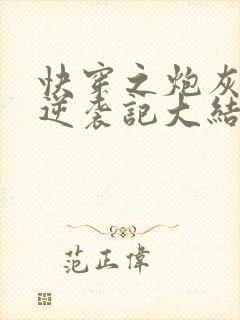 快穿之炮灰
逆袭記大結
范正偉